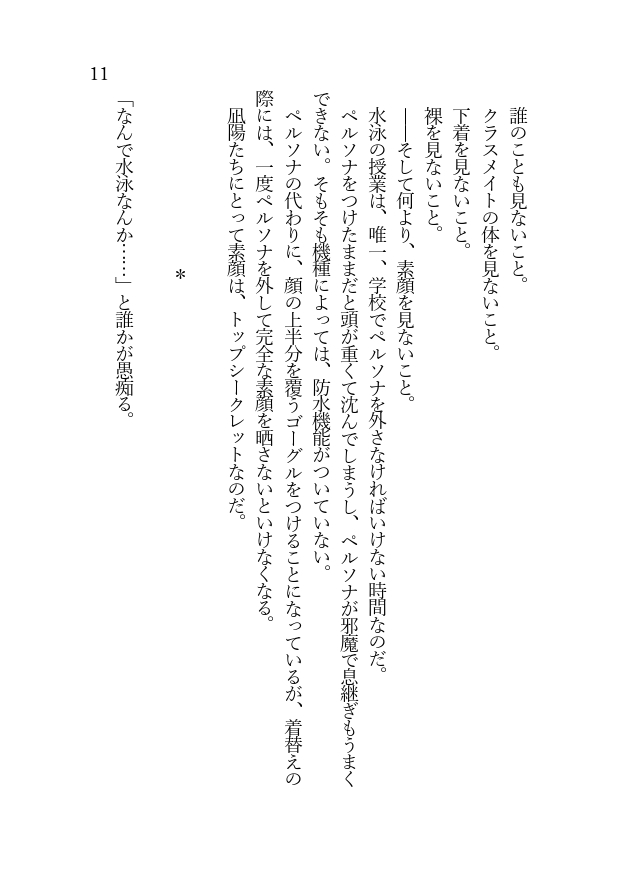 誰のことも見ないこと。
クラスメイトの体を見ないこと。
下着を見ないこと。
裸を見ないこと。
――そして何より、素顔を見ないこと。
水泳の授業は、唯一、学校でペルソナを外さなければいけない時間なのだ。
ペルソナをつけたままだと頭が重くて沈んでしまうし、ペルソナが邪魔で息継ぎもうまく
できない。そもそも機種によっては、防水機能がついていない。
ペルソナの代わりに、顔の上半分を覆うゴーグルをつけることになっているが、着替えの
際には、一度ペルソナを外して完全な素顔を晒さないといけなくなる。
凪陽たちにとって素顔は、トップシークレットなのだ。
＊
「なんで水泳なんか……」と誰かが愚痴る。
11